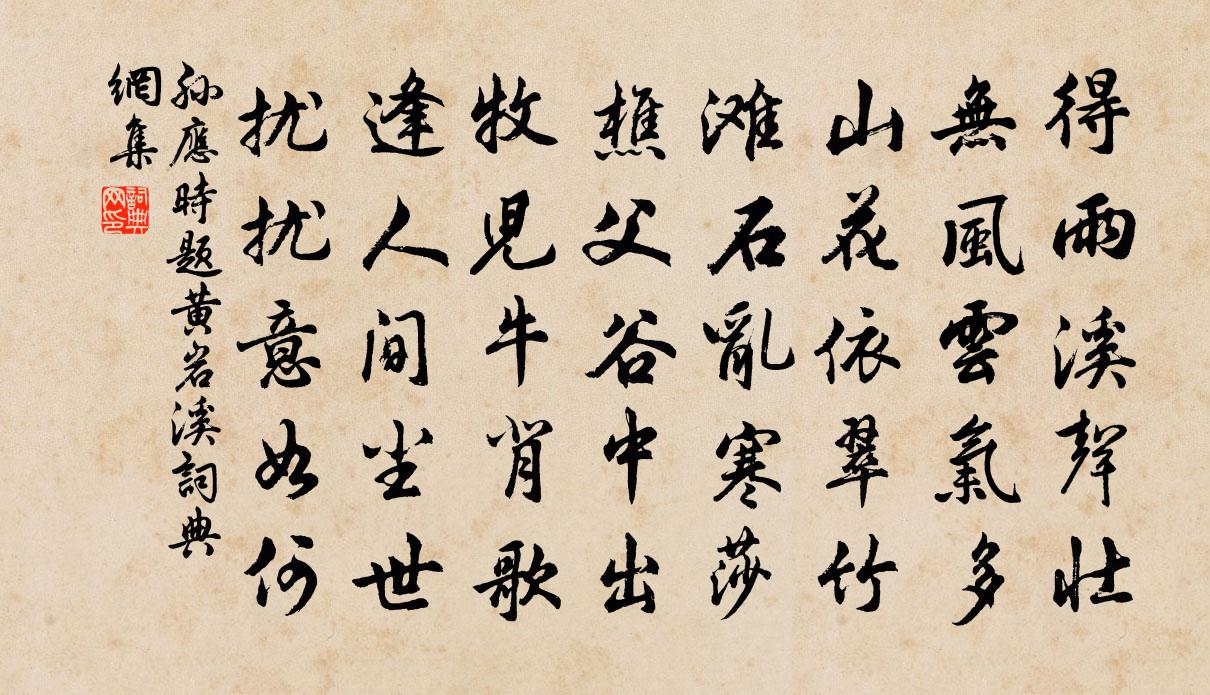 得雨溪聲壯
無風雲氣多
山花依翠竹
滩石亂寒莎
樵父谷中出
牧児牛肖歌
逢人间尘世
扰扰意如何
孙應時题黄岩溪詞典
網集
詞典
网印